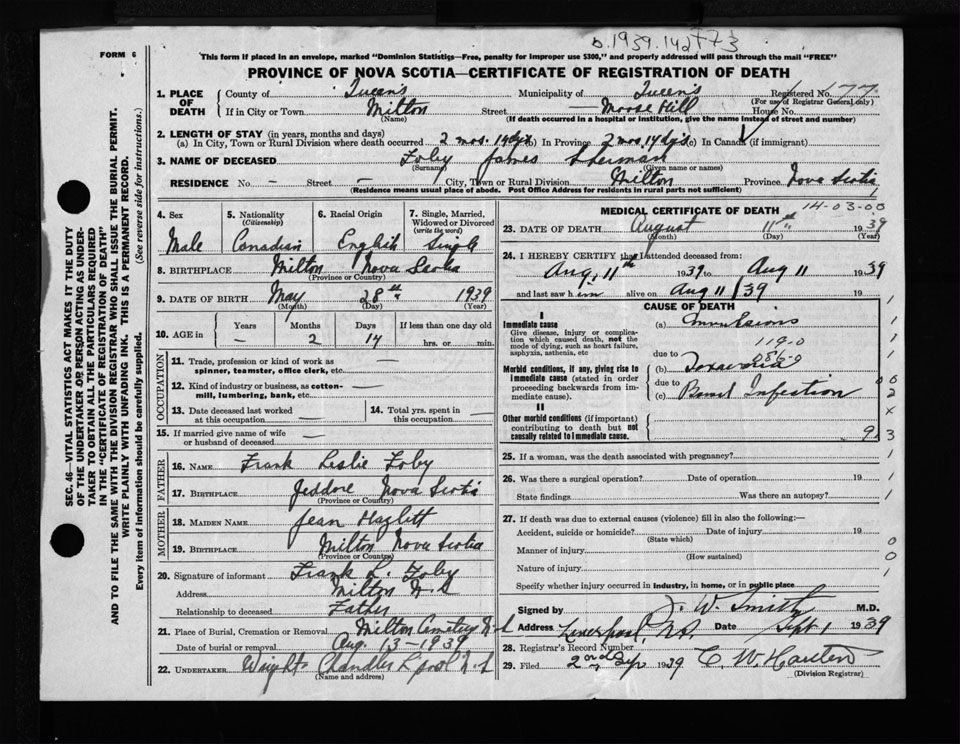 b.1939.142773
FORM 6
This form if placed in an envelope, marked "Dominion Statistics—Free, penalty for improper use $300," and properly addressed will pass through the mail "FREE"
PROVINCE OF NOVA SCOTIA—CERTIFICATE OF REGISTRATION OF DEATH
SEC. 46—VITAL STATISTICS ACT MAKES IT THE DUTY
OF THE UNDERTAKER OR PERSON ACTING AS UNDER-
TAKER TO OBTAIN ALL THE PARTICULARS REQUIRED
IN THE "CERTIFICATE OF REGISTRATION OF DEATH"
AND TO FILE THE SAME WITH THE DIVISION REGISTRAR WHO SHALL ISSUE THE BURIAL PERMIT.
WRITE PLAINLY WITH UNFADING INK. THIS IS A PERMANENT RECORD.
Every item of information should be carefully supplied. (See reverse side for instructions.)
1. PLACE OF DEATH County of Queens Municipality of Queens Registered No. 177
(For use of Registrar General only)
If in City or Town Milton Street — Moose Hill House No.
(Name) (If death occurred in a hospital or institution, give the name instead of street and number)
2. LENGTH OF STAY (in years, months and days)
(a) In City, Town or Rural Division where death occurred 2 mos. 14 dys (b) In Province 2 mos 14 dys (c) In Canada (if immigrant)
3. NAME OF DECEASED Foby James Sherman
(Surname) (Given name or names)
RESIDENCE No. — Street — City, Town or Rural Division Milton Province Nova Scotia
(Residence means usual place of abode. Post Office Address for residents in rural parts not sufficient)
4. Sex 5. Nationality 6. Racial Origin 7. Single, Married, Widowed or Divorced
(Citizenship) (write the word)
Male Canadian English Single
8. BIRTHPLACE Milton Nova Scotia
(Province or Country)
9. DATE OF BIRTH May 28th 1939
(Month) (Day) (Year)
10. AGE in Years Months Days If less than one day old
— 2 14 hrs. or min.
OCCUPATION
11. Trade, profession or kind of work as
spinner, teamster, office clerk, etc. —
12. Kind of industry or business, as cotton-
mill, lumbering, bank, etc. —
13. Date deceased last worked
at this occupation —
14. Total yrs. spent in
this occupation —
15. If married give name of wife
or husband of deceased —
FATHER
16. NAME Frank Leslie Foby
17. BIRTHPLACE Jeddore Nova Scotia
(Province or Country)
MOTHER
18. MAIDEN NAME Jean Hazlitt
19. BIRTHPLACE Milton Nova Scotia
(Province or Country)
20. Signature of informant Frank L. Foby
Address Milton N.S
Relationship to deceased Father
21. Place of Burial, Cremation or Removal Milton Cemetery N.S
Date of burial or removal Aug. 13 - 1939
22. UNDERTAKER Wright Chandler L'pool N.S
(Name and address)
MEDICAL CERTIFICATE OF DEATH 14-03-00
23. DATE OF DEATH August 11th 1939
(Month) (Day) (Year)
24. I HEREBY CERTIFY that I attended deceased from:
Aug. 11th 1939 to Aug 11 1939
and last saw him alive on Aug 11/39 19
CAUSE OF DEATH
I
Immediate cause
Give disease, injury or complica-
tion which caused death, not the
mode of dying, such as heart failure,
asphyxia, asthenia, etc
(a) Convulsions
119-0
due to
Morbid conditions, if any, giving rise to
immediate cause (stated in order
proceeding backwards from im-
mediate cause).
086-0
(b) Toxaemia
due to
(c) Bowel Infection
II
Other morbid conditions (if important)
contributing to death but not
causally related to immediate cause.
9
25. If a woman, was the death associated with pregnancy?
26. Was there a surgical operation? Date of operation 19
State findings Was there an autopsy?
27. If death was due to external causes (violence) fill in also the following:—
Accident, suicide or homicide? Date of injury 19
(State which)
Manner of injury
(How sustained)
Nature of injury
Specify whether injury occurred in industry, in home, or in public place
Signed by J. W. Smith M.D.
Address Liverpool, N.S. Date Sept 1 1939
28. Registrar's Record Number
29. Filed 2nd Sep 1939 C W Hauten
(Division Registrar)